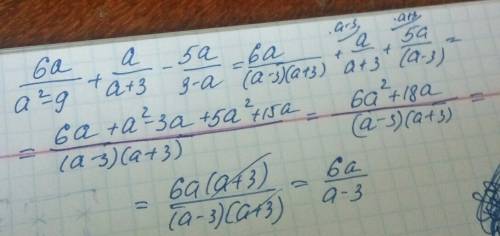 ·a-3 ·a+3
6a/(a²-9) + a/(a+3) - 5a/(9-a) = 6a/((a-3)(a+3)) + a/(a+3) + 5a/(a-3) =
= (6a + a² - 3a + 5a² + 15a)/((a-3)(a+3)) = (6a² + 18a)/((a-3)(a+3)) =
= 6a(a+3)/((a-3)(a+3)) = 6a/(a-3)